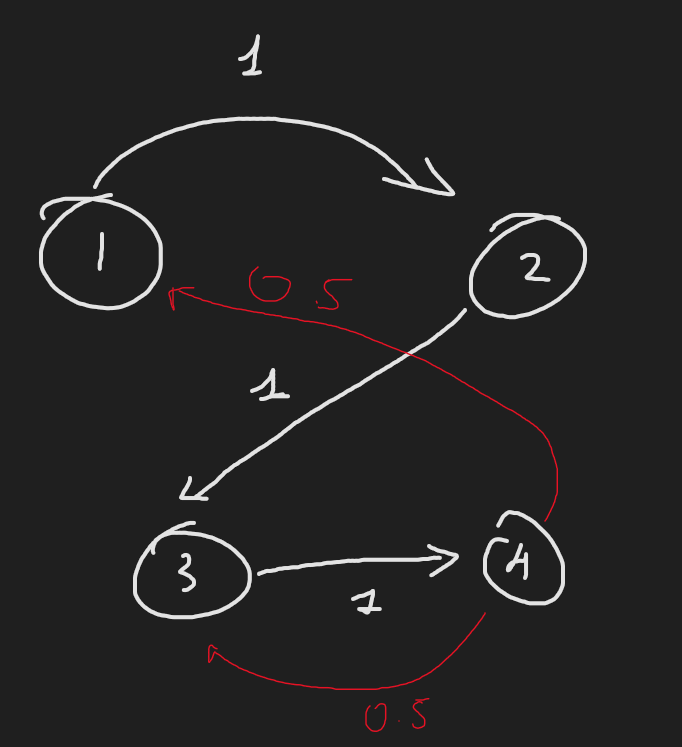 1
1
2
0.5
1
3
4
1
0.5